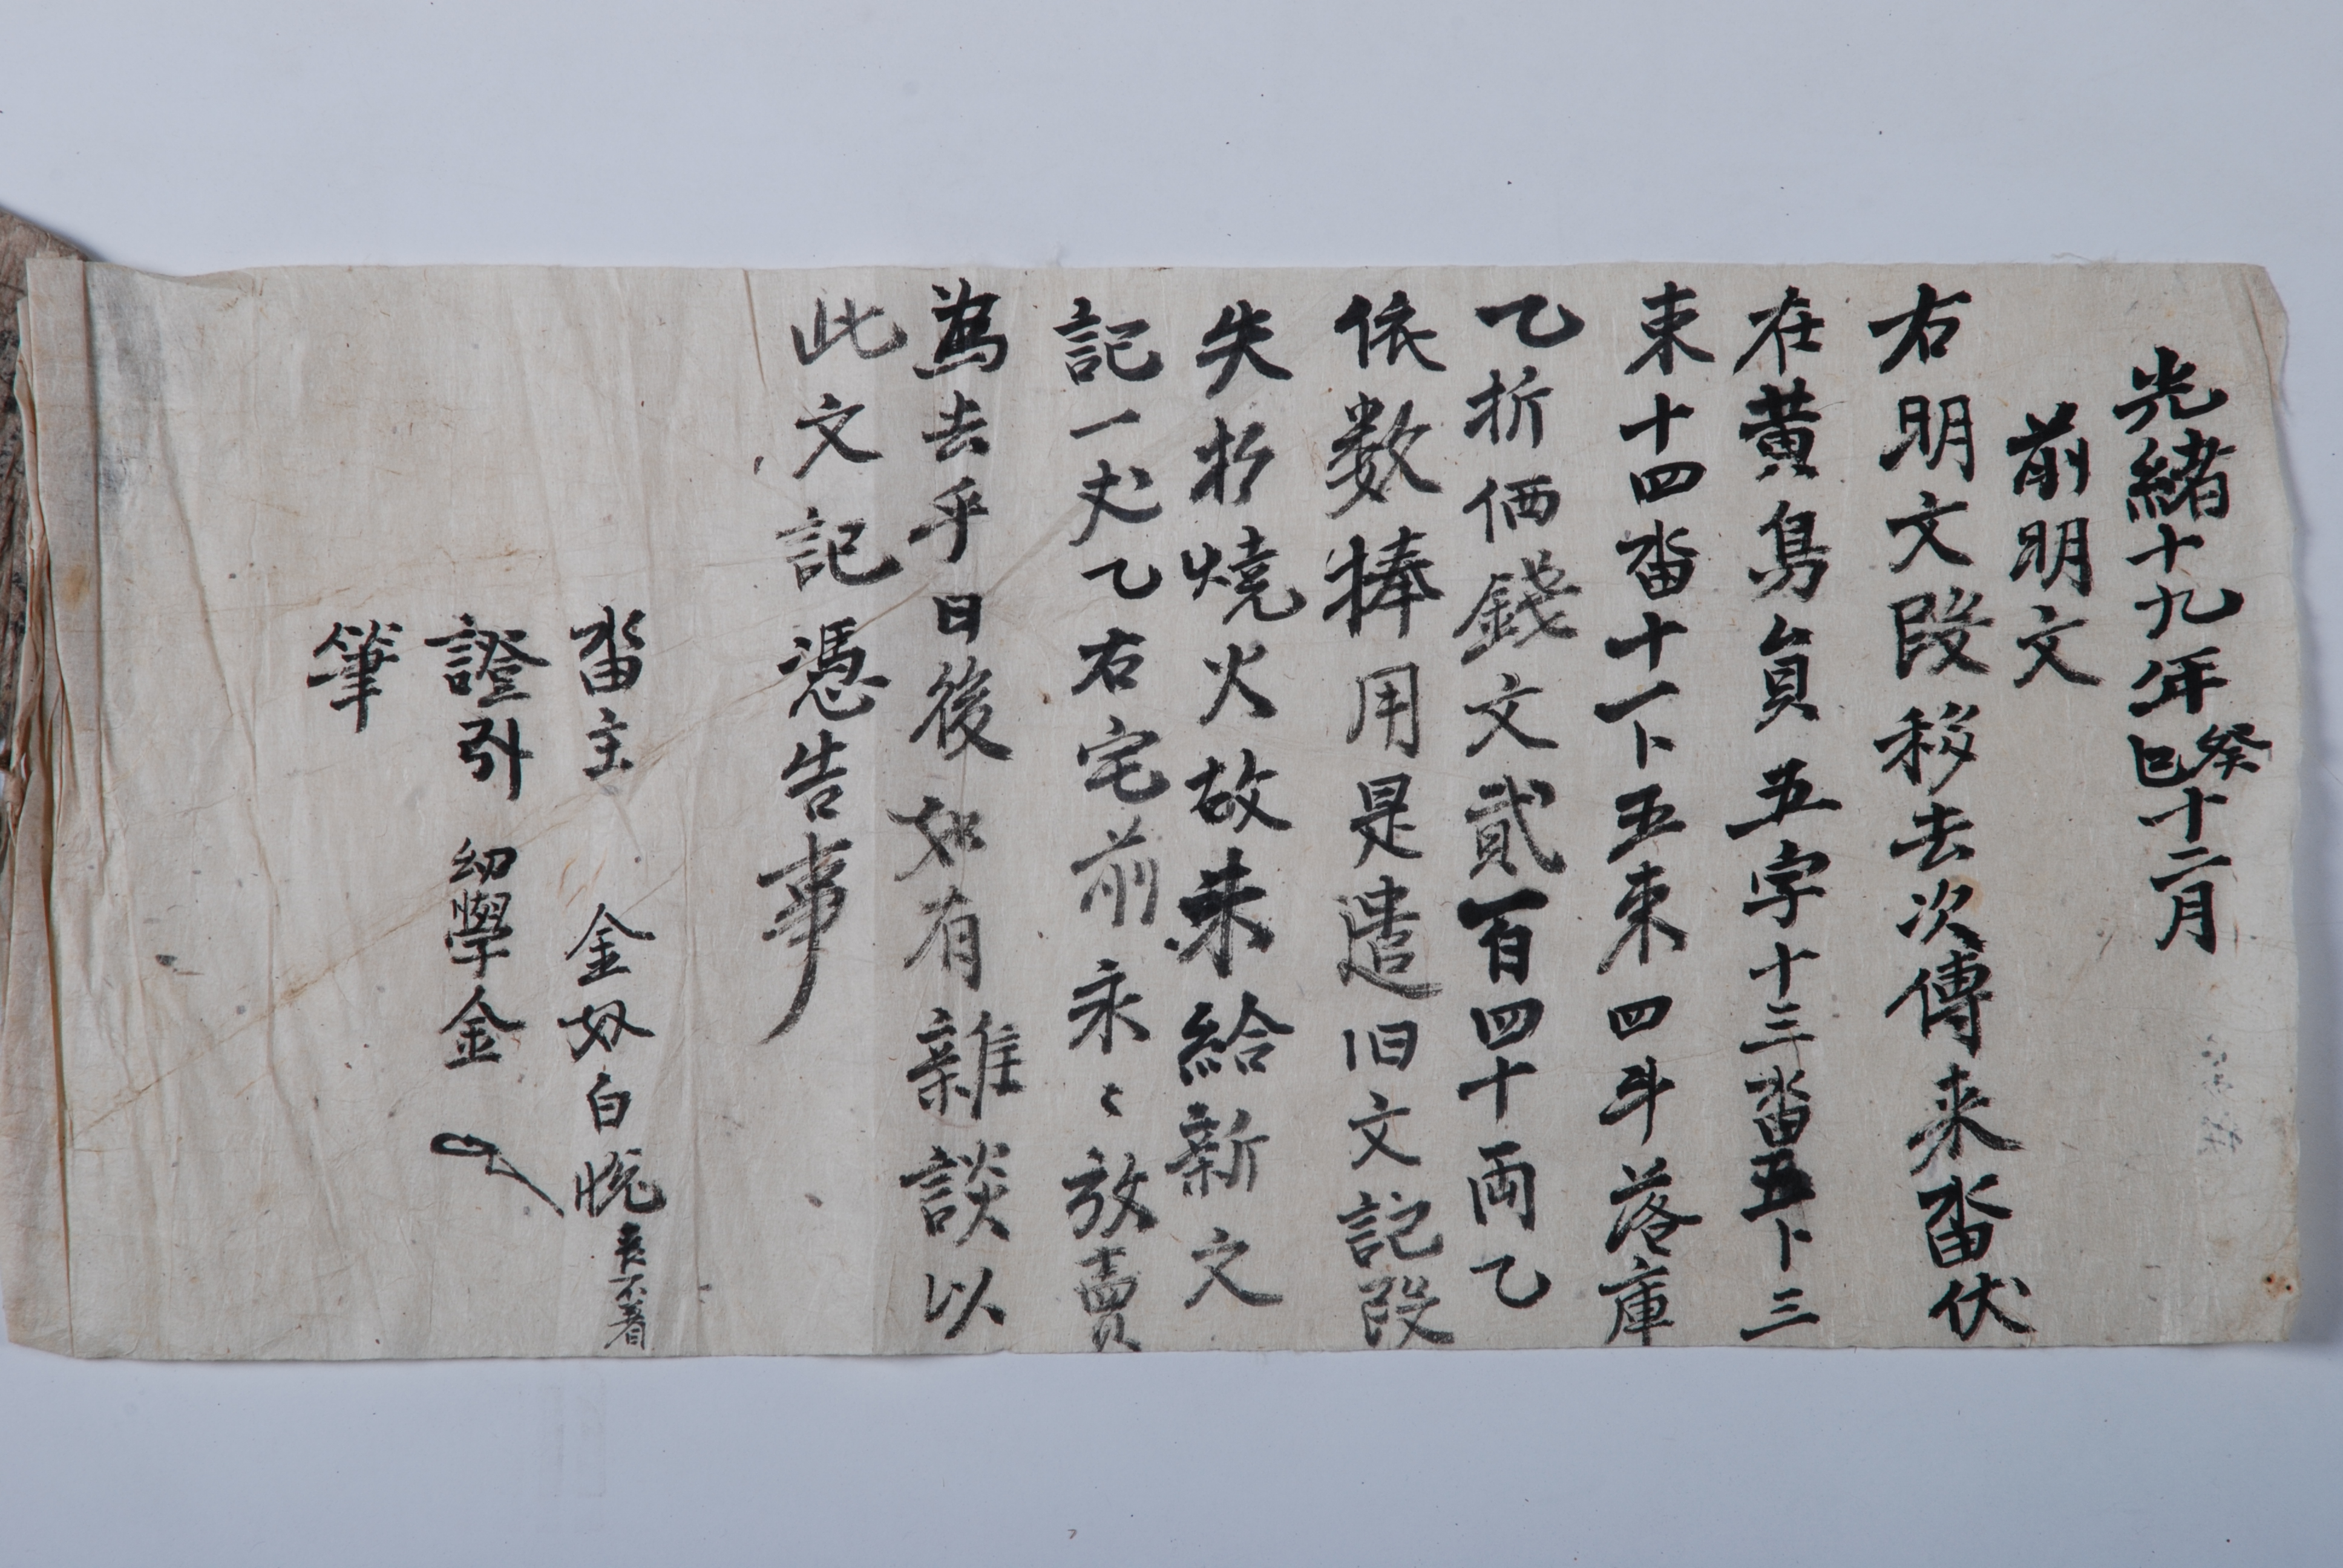 光緒十九年癸巳十二月
前明文
右明文段移去次傳来畓伏
在黃島員五字十三畓五卜三
束十四畓十一卜五束四斗落庫
乙折価錢文貳百四十両乙
依数捧用是遣旧文記段
失於燒火故未給新文
記一丈乙右宅前永〻放賣
為去乎日後如有雜談以
此文記憑告事
畓主 金奴白悅 喪不著
證引 幼學金
筆